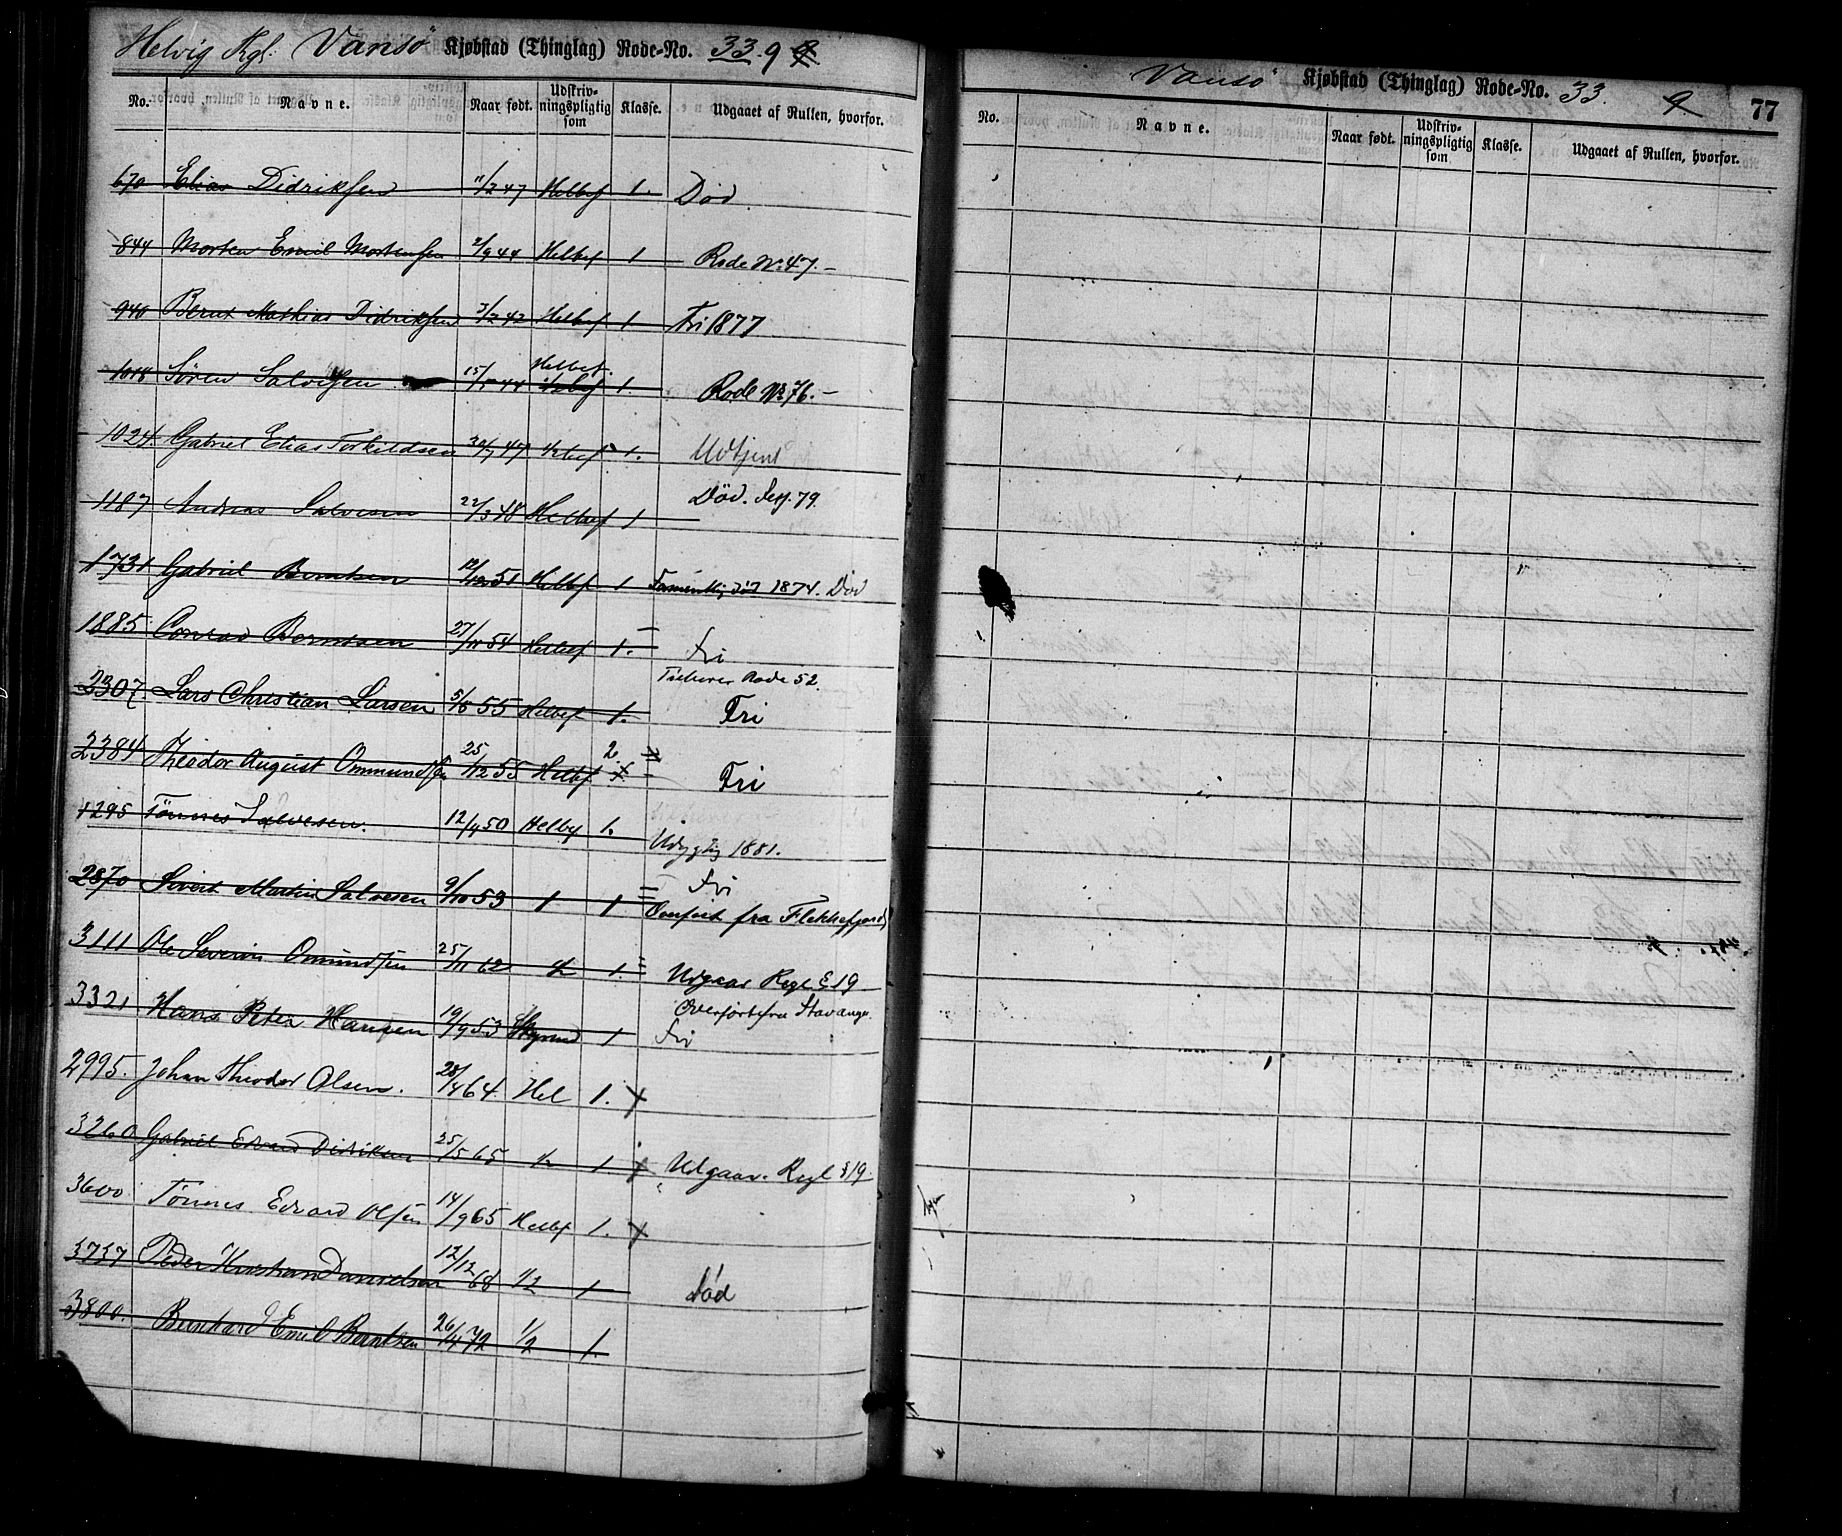 Helvig Kgl. Vansö Kjøbstad (Thinglag) Rode-No. 33. 9
No. Navne. Naar født. Udskrivningspligtig som Klasse. Udgaaet af Rullen, hvorfor.
670 Elias Didriksen 11/2 47 Helbef 1. Död
844 Morten Emil Mortensen 2/9 44 Helbef 1 Rode No 47.-
940 Bernt Mathias Didriksen 3/2 42 Helbef 1 Fri 1877
1018 Sören Salvesen 15/5 44 Helbef. 1. Rode No 76.-
1024. Gabriel Elias Torkildsen 30/7 47 Helbef 1. Udtjent
1187 Andreas Salvesen 22/3 48 Helbef 1 Död. Des. 79.
1731 Gabriel Berntsen 12/12 51 Helbef 1 1874. Död
1885 Conrad Berntsen 27/11 54 Helbef 1. Fri
Tilhører Rode 52.
2307. Lars Christian Larsen 5/8 55 Helbef 1. Fri
2384 Theodor August Ommundsen 25/12 55 Helbef 2 Fri
1295 Tönnes Salvesen. 12/9 50 Helbef 1. Udygtig 1881.
2870 Sivert Martin Salvesen 9/10 53 1 1 Fri
Overført fra Flekkefjord
3111 Ole Severin Omundsen 25/11 62 1/2 1. Udgaar Regl § 19
3321 Hans Peter Hansen 19/9 53 1 Overført fra Stavanger.
Fri
2995. Johan Theodor Olsen. 28/4 64 Hel 1. +
3260 Gabriel Edvard Didriksen 25/5 65 1/2 1 + Udgaar. Regl § 19
3600 Tönnes Edvard Olsen 14/9 65 Helbef 1. +
3737 Peder Kristian Danielsen 12/12 68 1/2 1 Död
3800. Bernhard Emil Berntsen 26/4 72 1/2 1.
Vansö Kjøbstad (Thinglag) Rode-No. 33. 9. 77
No. Navne. Naar født. Udskrivningspligtig som Klasse. Udgaaet af Rullen, hvorfor.